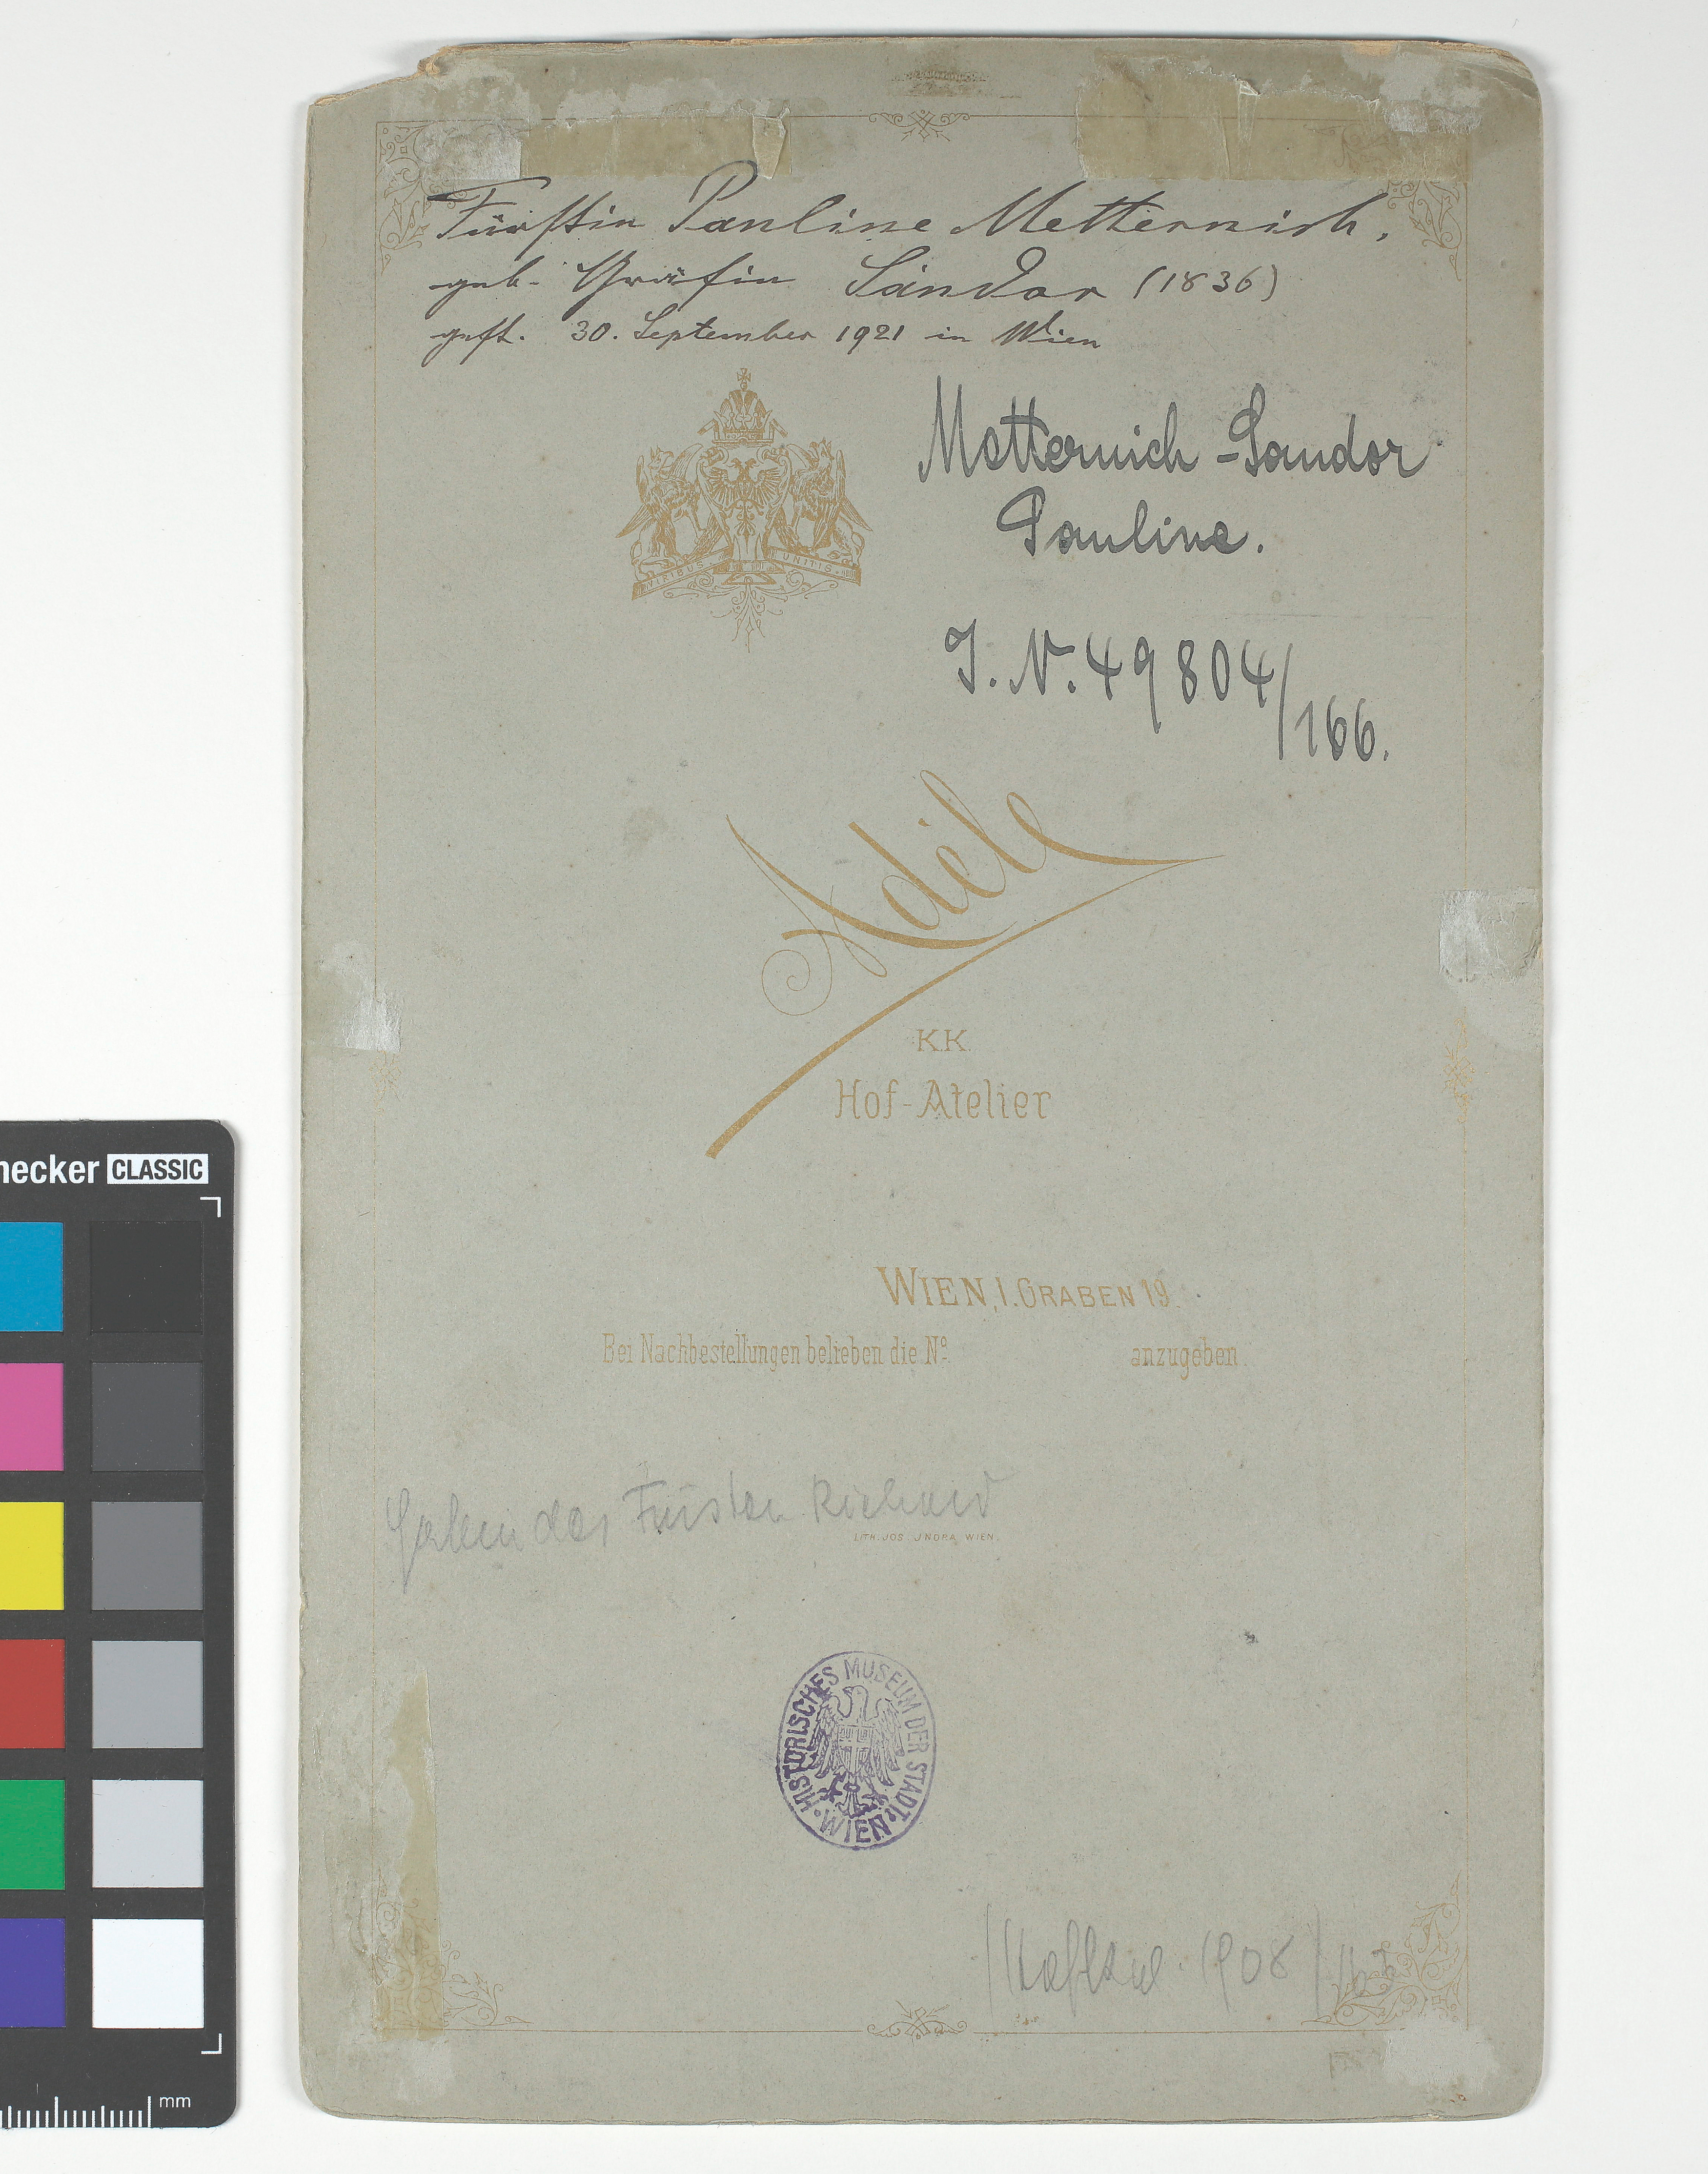 Fürstin Pauline Metternich,
geb. Gräfin Sándor (1836)
gest. 30. September 1921 in Wien
VIRIBUS UNITIS
Metternich-Sandor
Pauline.
I. N. 49804/166.
Adéle
K.K.
Hof-Atelier
WIEN, I. GRABEN 19.
Bei Nachbestellungen belieben die Nº anzugeben
des Fürsten Richard
LITH. JOS. JNDRA, WIEN.
HISTORISCHES MUSEUM DER STADT WIEN
1908
necker CLASSIC
mm